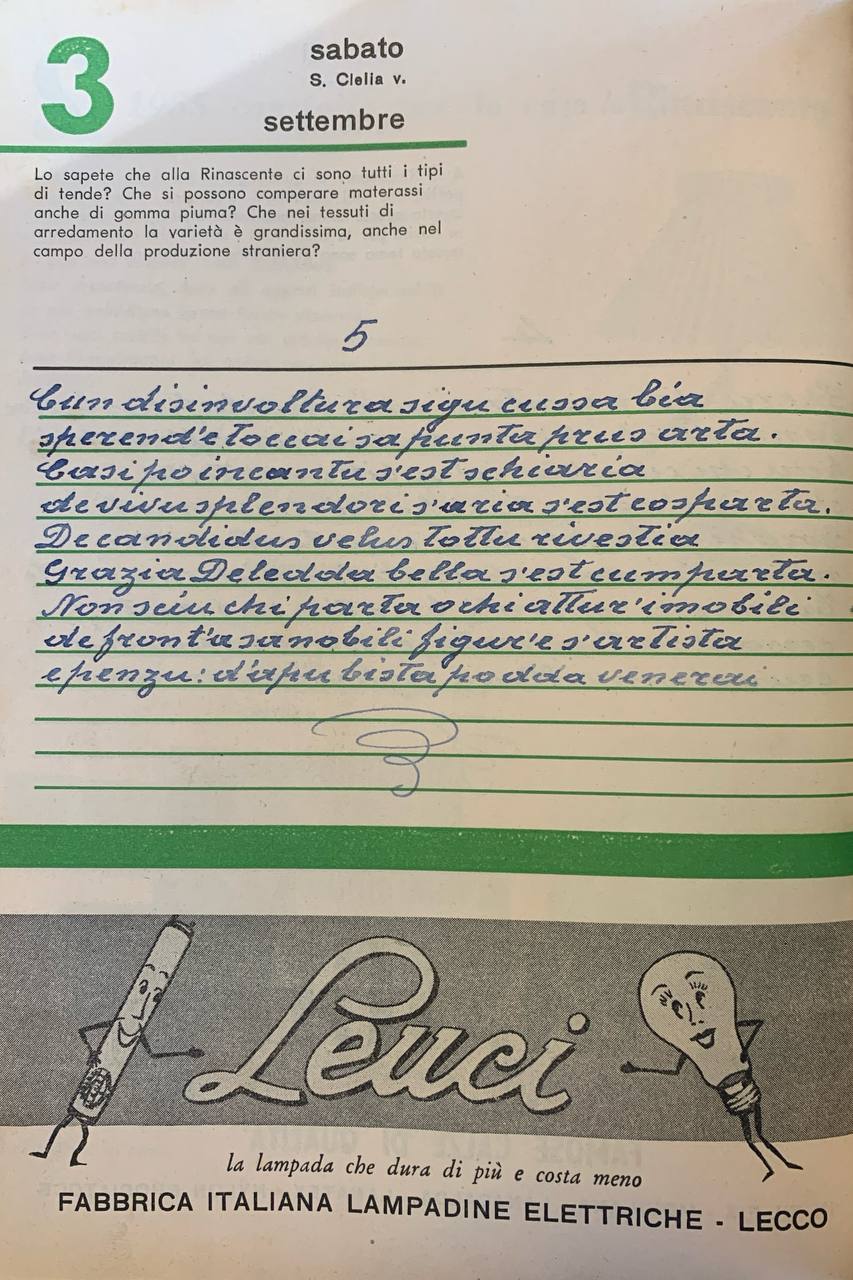 3
sabato
S. Clelia v.
settembre
Lo sapete che alla Rinascente ci sono tutti i tipi
di tende? Che si possono comperare materassi
anche di gomma piuma? Che nei tessuti di
arredamento la varietà è grandissima, anche nel
campo della produzione straniera?
5
Cun disinvoltura sigu cussa bía
sperend'e toccai sa punta prus arta.
Casi po incantu s'est schiaria
de vivu splendori s'aria s'est cosparta.
De candidus velus tottu rivestia
Grazia Deledda bella s'est cumparta.
Non sciu chi parta o chi attur'imobili
de front'a sa nobili figur'e s'artista
e penzu: d'apu bista po dda venerai
Leuci
la lampada che dura di più e costa meno
FABBRICA ITALIANA LAMPADINE ELETTRICHE - LECCO